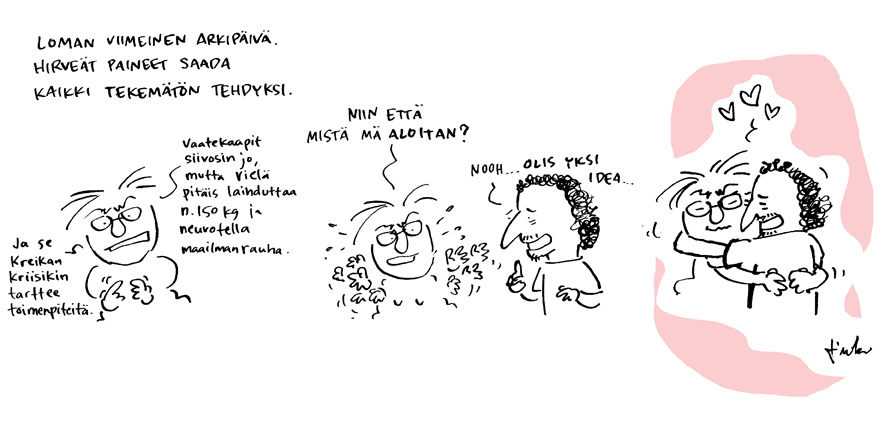 LOMAN VIIMEINEN ARKIPÄIVÄ.
HIRVEÄT PAINEET SAADA
KAIKKI TEKEMÄTÖN TEHDYKSI.
vaatekaapit
siivosin jo,
mutta vielä
pitäis laihduttaa
n. 150 kg ja
neuvotella
maailmanrauha.
Ja se
Kreikan
kriisikin
tarttee
toimenpiteitä.
NIIN ETTÄ
MISTÄ MÄ ALOITAN?
NOOH... OLIS YKSI
IDEA...